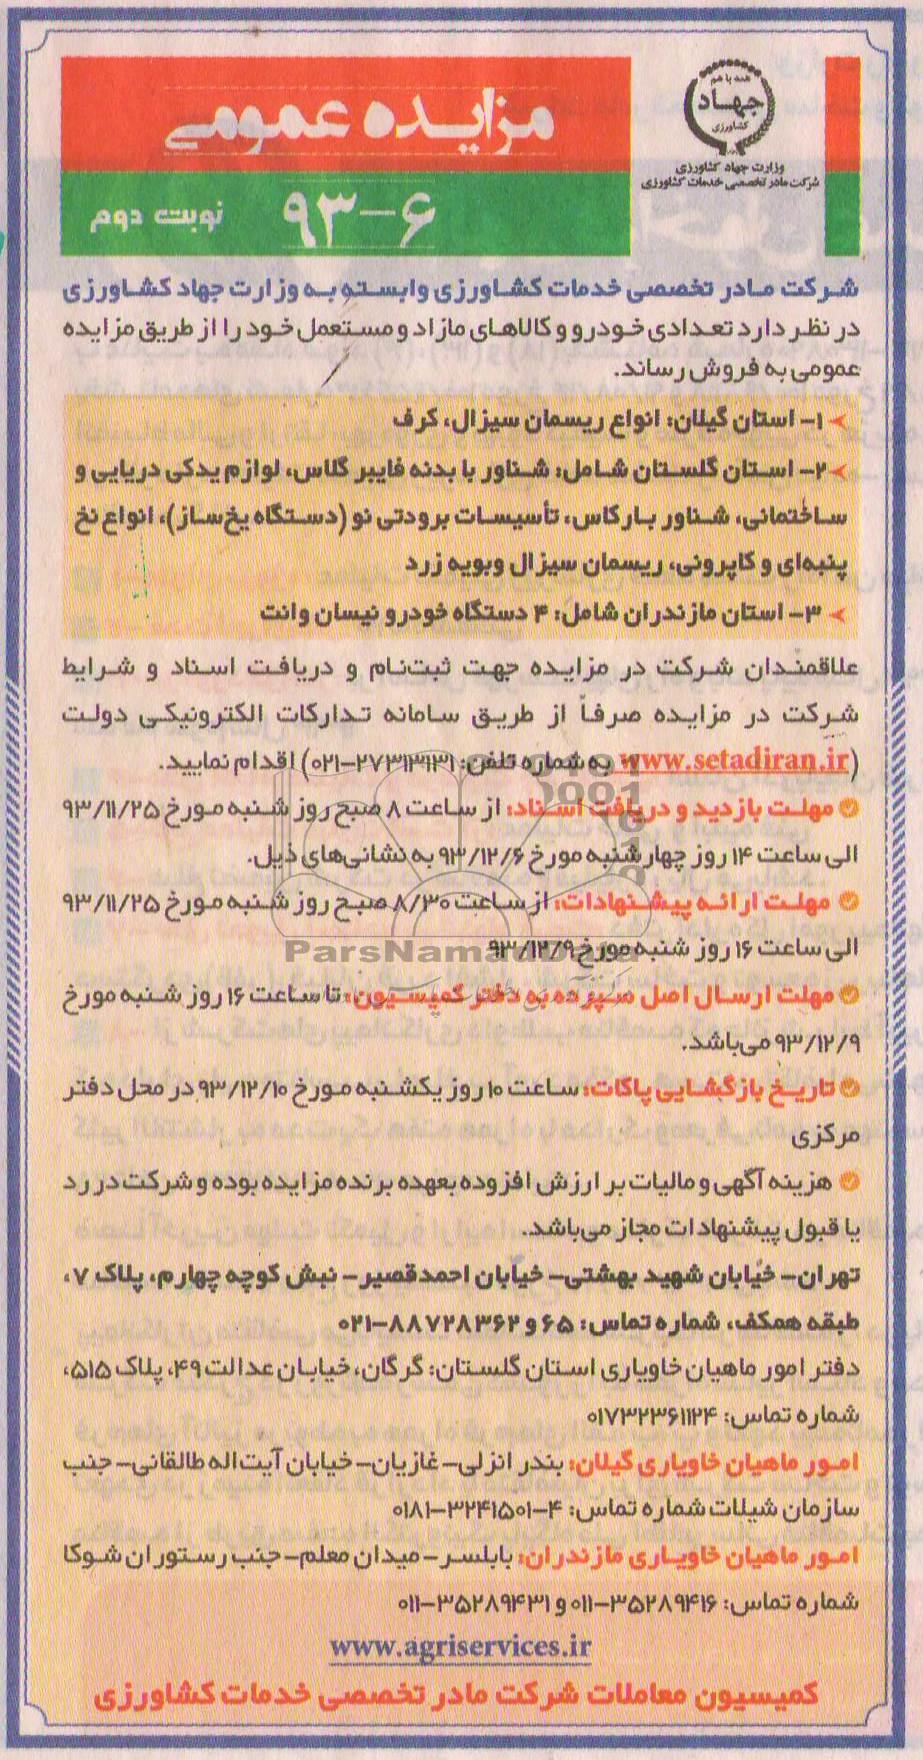 همه با هم
جهاد
کشاورزی
وزارت جهاد کشاورزی
شرکت مادر تخصصی خدمات کشاورزی
مزایده عمومی
۹۳-۶
نوبت دوم
شرکت مادر تخصصی خدمات کشاورزی وابسته به وزارت جهاد کشاورزی
در نظر دارد تعدادی خودرو و کالاهای مازاد و مستعمل خود را از طریق مزایده
عمومی به فروش رساند.
۱- استان گیلان: انواع ریسمان سیزال، کرف
۲- استان گلستان شامل: شناور با بدنه فایبر گلاس، لوازم یدکی دریایی و
ساختمانی، شناور بارکاس، تأسیسات برودتی نو (دستگاه یخ‌ساز)، انواع نخ
پنبه‌ای و کاپرونی، ریسمان سیزال وبویه زرد
۳- استان مازندران شامل: ۴ دستگاه خودرو نیسان وانت
علاقمندان شرکت در مزایده جهت ثبت‌نام و دریافت اسناد و شرایط
شرکت در مزایده صرفاً از طریق سامانه تدارکات الکترونیکی دولت
(www.setadiran.ir به شماره تلفن: ۲۷۳۱۳۱۳۱-۰۲۱) اقدام نمایید.
مهلت بازدید و دریافت اسناد: از ساعت ۸ صبح روز شنبه مورخ ۹۳/۱۱/۲۵
الی ساعت ۱۴ روز چهارشنبه مورخ ۹۳/۱۲/۶ به نشانی‌های ذیل.
مهلت ارائه پیشنهادات: از ساعت ۸/۳۰ صبح روز شنبه مورخ ۹۳/۱۱/۲۵
الی ساعت ۱۶ روز شنبه مورخ ۹۳/۱۲/۹
ParsNamadData
مهلت ارسال اصل سپرده به دفتر کمیسیون: تا ساعت ۱۶ روز شنبه مورخ
۹۳/۱۲/۹ می‌باشد.
تاریخ بازگشایی پاکات: ساعت ۱۰ روز یکشنبه مورخ ۹۳/۱۲/۱۰ در محل دفتر
مرکزی
هزینه آگهی و مالیات بر ارزش افزوده بعهده برنده مزایده بوده و شرکت در رد
یا قبول پیشنهادات مجاز می‌باشد.
تهران- خیابان شهید بهشتی- خیابان احمدقصیر- نبش کوچه چهارم، پلاک ۷،
طبقه همکف، شماره تماس: ۶۵ و ۸۸۷۲۸۳۶۲-۰۲۱
دفتر امور ماهیان خاویاری استان گلستان: گرگان، خیابان عدالت ۴۹، پلاک ۵۱۵،
شماره تماس: ۰۱۷۳۲۳۶۱۱۲۴
امور ماهیان خاویاری گیلان: بندر انزلی- غازیان- خیابان آیت‌اله طالقانی- جنب
سازمان شیلات شماره تماس: ۴-۳۲۴۱۵۰۱-۰۱۸۱
امور ماهیان خاویاری مازندران: بابلسر- میدان معلم- جنب رستوران شوکا
شماره تماس: ۳۵۲۸۹۴۱۶-۰۱۱ و ۳۵۲۸۹۴۳۱-۰۱۱
www.agriservices.ir
کمیسیون معاملات شرکت مادر تخصصی خدمات کشاورزی